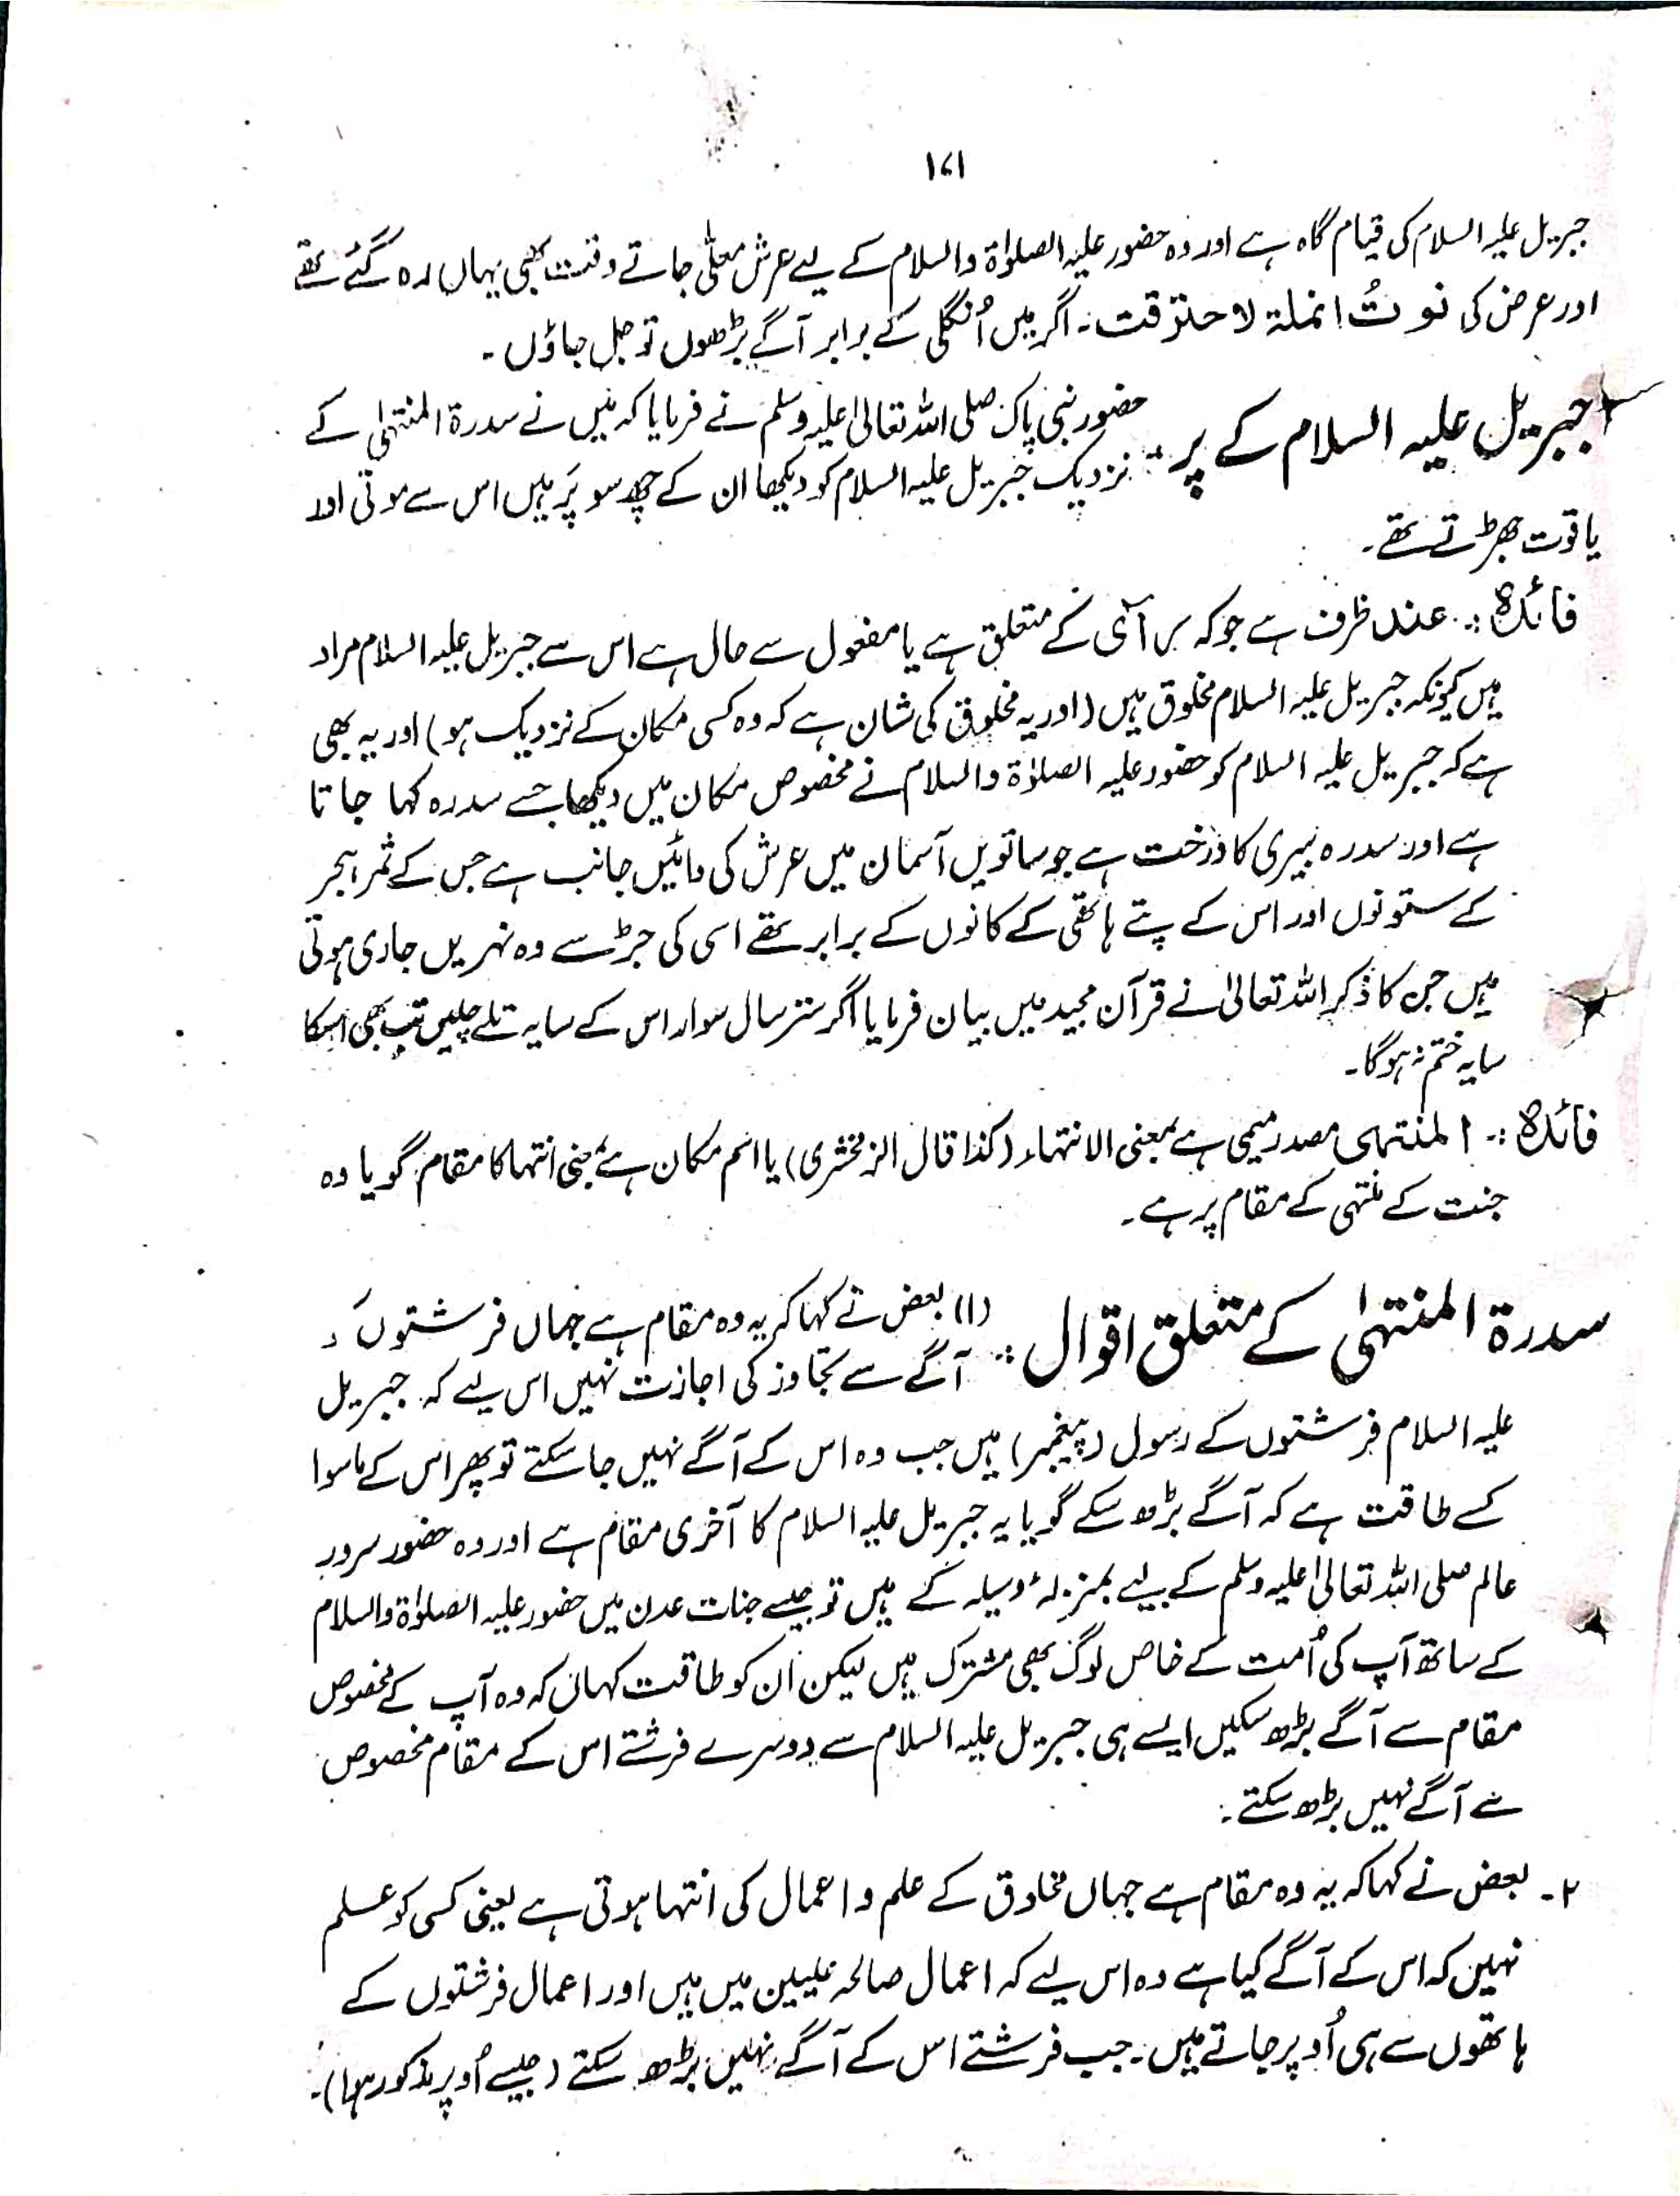 ۱۷۱
جبریل علیہ السلام کی قیام گاہ ہے اور وہ حضور علیہ الصلوٰۃ والسلام کے لیے عرش معلّٰی جاتے وقت بھی یہاں رہ گئے تھے
اور عرض کی نو تُ انملۃ لا حترقت۔ اگر میں اُنگلی کے برابر آگے بڑھوں تو جل جاؤں۔
جبریل علیہ السلام کے پر :- حضور نبی پاک صلی اللہ تعالیٰ علیہ وسلم نے فرمایا کہ میں نے سدرۃ المنتہیٰ کے
نزدیک جبریل علیہ السلام کو دیکھا ان کے چھ سو پَر ہیں اس سے موتی اور
یاقوت جھڑتے تھے۔
فائدہ :- عند ظرف ہے جو کہ س آئ کے متعلق ہے یا مفعول سے حال ہے اس سے جبریل علیہ السلام مراد
ہیں کیونکہ جبریل علیہ السلام مخلوق ہیں (اور یہ مخلوق کی شان ہے کہ وہ کسی مکان کے نزدیک ہو) اور یہ بھی
ہے کہ جبریل علیہ السلام کو حضور علیہ الصلوٰۃ والسلام نے مخصوص مکان میں دیکھا جسے سدرہ کہا جاتا
ہے اور سدرہ بیری کا درخت ہے جو ساتویں آسمان میں عرش کی دائیں جانب ہے جس کے ثمر ہجر
کے ستونوں اور اس کے پتے ہاتھی کے کانوں کے برابر تھے اسی کی جڑ سے وہ نہریں جاری ہوتی
ہیں جن کا ذکر اللہ تعالیٰ نے قرآن مجید میں بیان فرمایا اگر ستر سال سوار اس کے سایہ تلے چلیں تب بھی اسکا
سایہ ختم نہ ہوگا۔
فائدہ :- المنتہی مصدر میمی ہے بمعنی الانتہاء (کذا قال الزمخشری) یا اسم مکان ہے بمعنی انتہا کا مقام گویا وہ
جنت کے منتہی کے مقام پر ہے۔
سدرۃ المنتہیٰ کے متعلق اقوال :- (۱) بعض نے کہا کہ یہ وہ مقام ہے جہاں فرشتوں
آگے سے تجاوز کی اجازت نہیں اس لیے کہ جبریل
علیہ السلام فرشتوں کے رسول (پیغمبر) ہیں جب وہ اس کے آگے نہیں جا سکتے تو پھر اس کے ماسوا
کے طاقت ہے کہ آگے بڑھ سکے گویا یہ جبریل علیہ السلام کا آخری مقام ہے اور وہ حضور سرور
عالم صلی اللہ تعالیٰ علیہ وسلم کے لیے بمنزلہ وسیلہ کے ہیں تو جیسے جنات عدن میں حضور علیہ الصلوٰۃ والسلام
کے ساتھ آپ کی اُمت کے خاص لوگ بھی مشترک ہیں لیکن ان کو طاقت کہاں کہ وہ آپ کے مخصوص
مقام سے آگے بڑھ سکیں ایسے ہی جبریل علیہ السلام سے دوسرے فرشتے اس کے مقام مخصوص
سے آگے نہیں بڑھ سکتے۔
۲۔ بعض نے کہا کہ یہ وہ مقام ہے جہاں مخلوق کے علم و اعمال کی انتہا ہوتی ہے یعنی کسی کو علم
نہیں کہ اس کے آگے کیا ہے وہ اس لیے کہ اعمال صالحہ علیین میں ہیں اور اعمال فرشتوں کے
ہاتھوں سے ہی اُوپر جاتے ہیں۔ جب فرشتے اس کے آگے نہیں بڑھ سکتے (جیسے اُوپر مذکور ہوا)۔